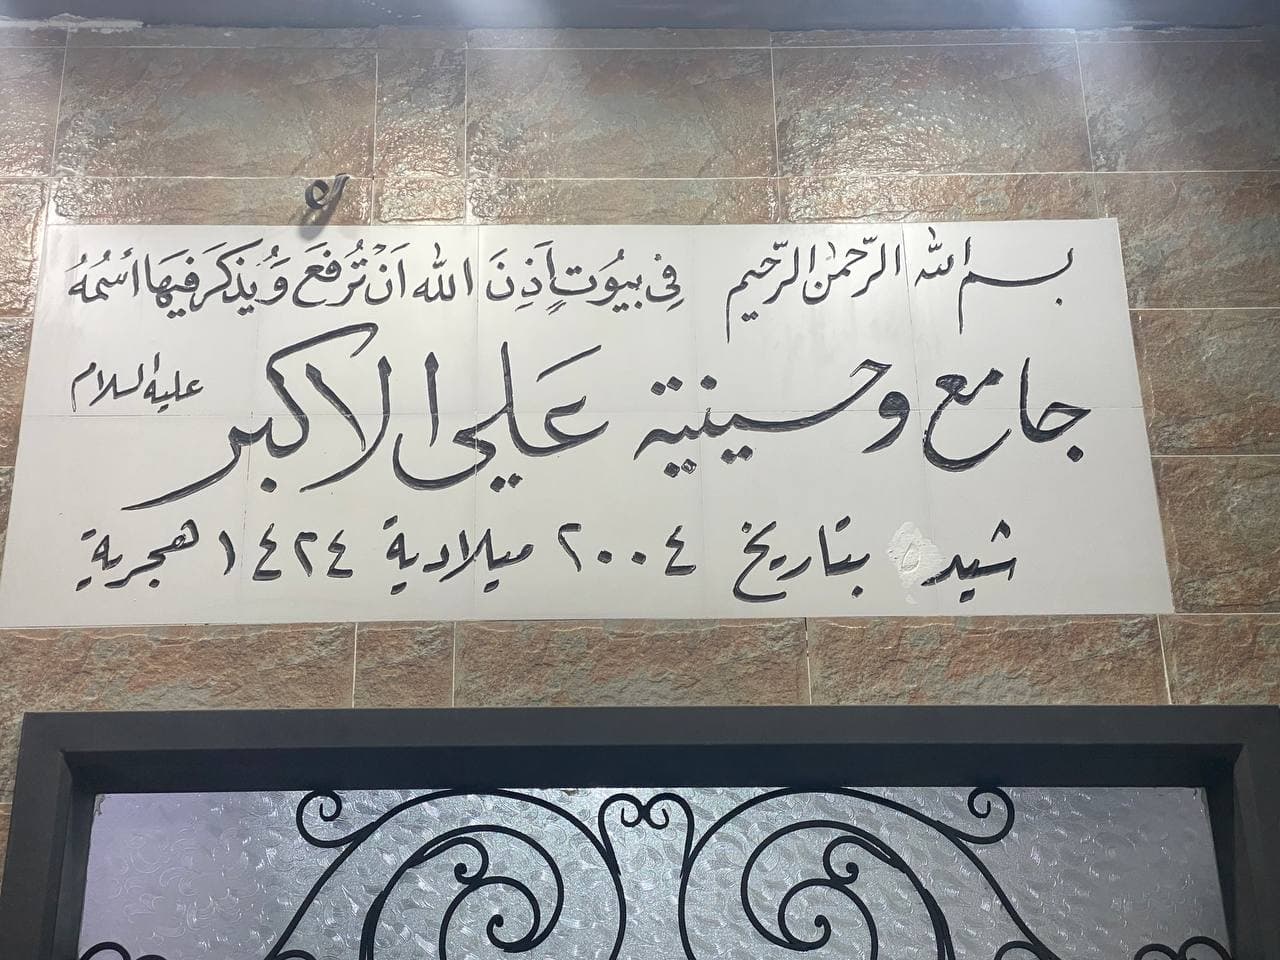 بسم الله الرحمن الرحيم فِي بيُوتٍ أَذِنَ الله اَنْ تُرفَعَ وَيُذكَرَ فيهَا أسْمُهُ
جامع وحسينية علي الاكبر عليه السلام
شيد بتاريخ ٢٠٠٤ ميلادية ١٤٢٤ هجرية